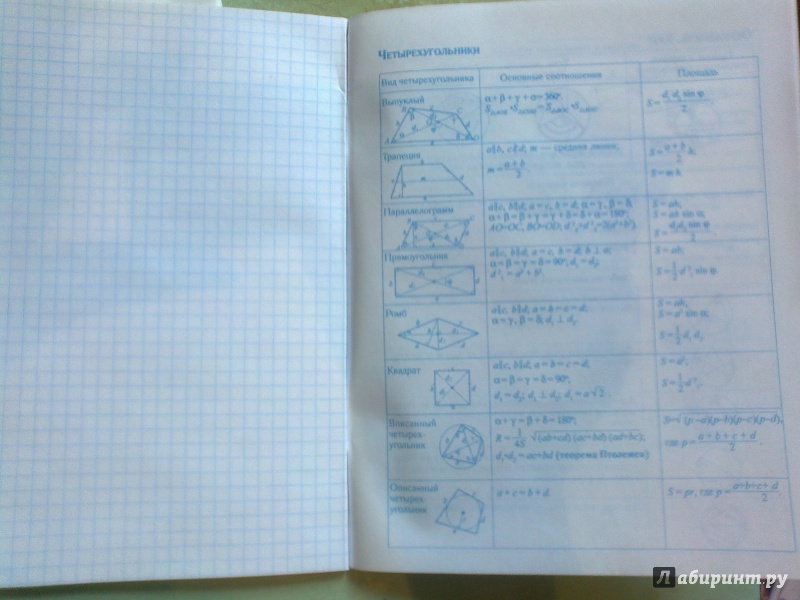 ЧЕТЫРЕХУГОЛЬНИКИ
Вид четырехугольника Основные соотношения Площадь
Выпуклый
α + β + γ + α = 360º.
S = d₁d₂ sin φ / 2.
Трапеция
a∥b, c∦d, m — средняя линия;
m = a + b / 2.
S = a + b / 2 h;
S = m h.
Параллелограмм
a∥c, b∥d; a = c, b = d; α = γ, β = δ;
α + β = β + γ = γ + δ = δ + α = 180º;
AO=OC, BO=OD; d²₁+d²₂=2(a²+b²).
S = ah;
S = ab sin α;
S = d₁d₂ sin φ / 2.
Прямоугольник
a∥c, b∥d; a = c, b = d; b ⊥ a;
α = β = γ = δ = 90º; d₁ = d₂;
d²₁ = a² + b².
S = ab;
S = 1/2 d²₁ sin φ.
Ромб
a∥c, b∥d; a = b = c = d;
α = γ, β = δ; d₁ ⊥ d₂.
S = ah;
S = a² sin α;
S = 1/2 d₁ d₂
Квадрат
a∥c, b∥d; a = b = c = d;
α = β = γ = δ = 90º;
d₁ = d₂; d₁ ⊥ d₂; d₁ = a√2.
S = a²;
S = 1/2 d²₁.
Вписанный
четырех-
угольник
α + γ = β + δ = 180º;
R = 1/4S √(ab+cd) (ac+bd) (ad+bc);
d₁•d₂ = ac+bd (теорема Птолемея)
S=√(p–a)(p–b)(p–c)(p–d),
где p = a + b + c + d / 2.
Описанный
четырех-
угольник
a + c = b + d.
S = pr, где p = a+b+c+d / 2.
Лабиринт.ру